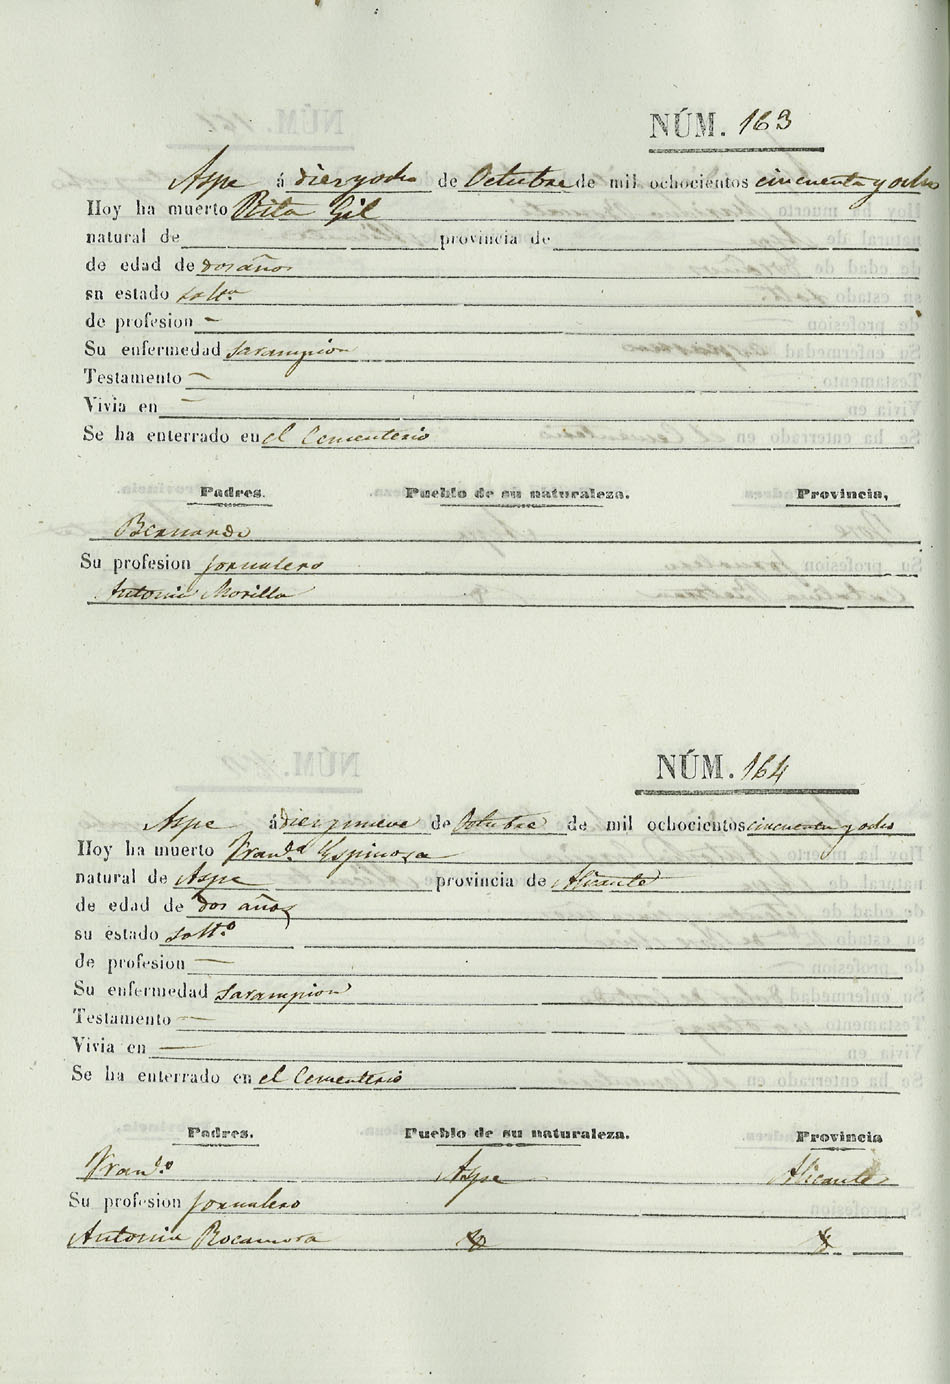 NÚM. 163
Aspe á diez y ocho de Octubre de mil ochocientos cincuenta y ocho
Hoy ha muerto Rita Gil
natural de provincia de
de edad de dos años
su estado solt.ª
de profesion —
Su enfermedad sarampion
Testamento —
Vivia en —
Se ha enterrado en el Cementerio
Padres. Pueblo de su naturaleza. Provincia,
Bernardo
Su profesion jornalero
Antonia Morilla
NÚM. 164
Aspe á diez y nueve de Octubre de mil ochocientos cincuenta y ocho
Hoy ha muerto Fran.ca Espinosa
natural de Aspe provincia de Alicante
de edad de dos años
su estado solt.ª
de profesion —
Su enfermedad sarampion
Testamento —
Vivia en —
Se ha enterrado en el Cementerio
Padres. Pueblo de su naturaleza. Provincia
Fran.co Aspe Alicante
Su profesion jornalero
Antonia Rocamora